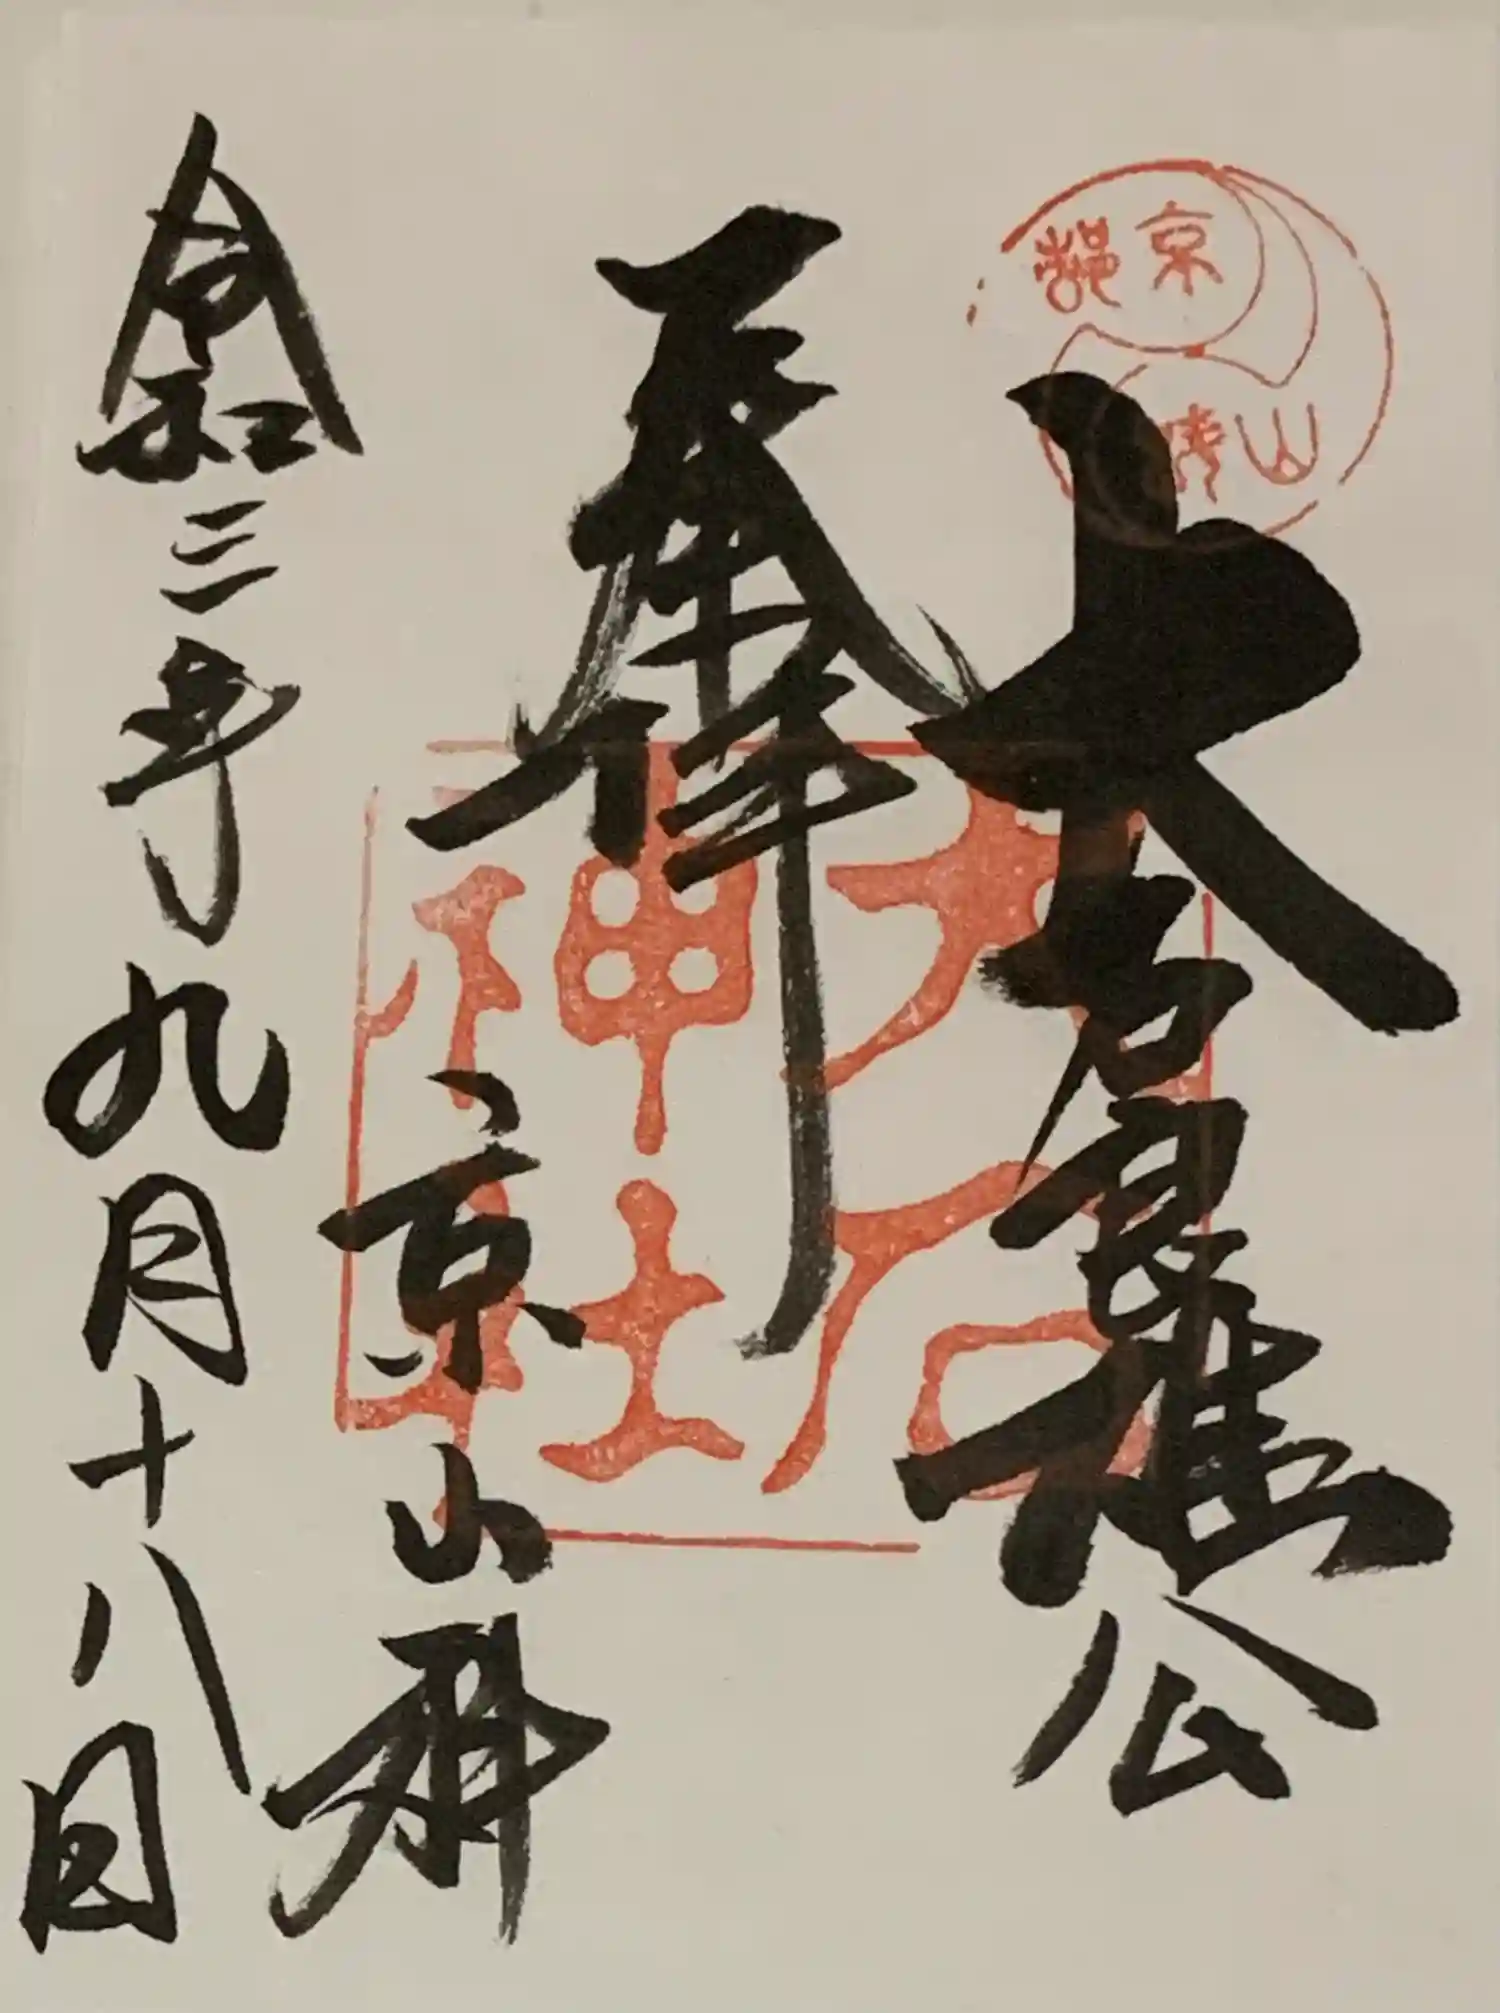 大石良雄公
奉拝
京山科
令和三年九月十八日
大石
神社
京都
山